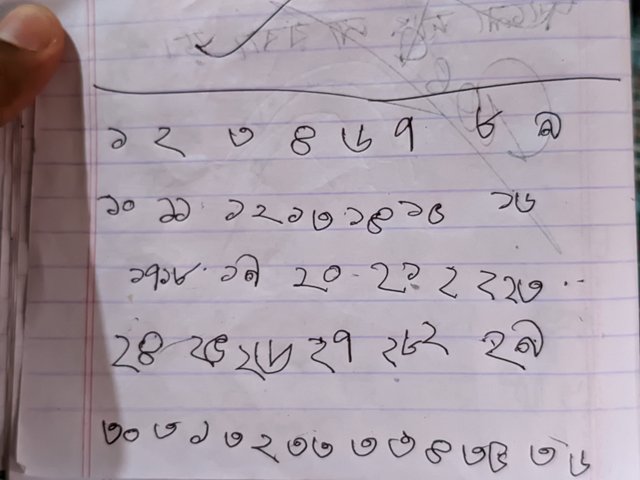 ১ ২ ৩ ৪ ৬ ৭ ৮ ৯
১০ ১১ ১২ ১৩ ১৪ ১৫ ১৬
১৭ ১৮ ১৯ ২০ ২১ ২২ ২৩
২৪ ২৫ ২৬ ২৭ ২৮ ২ ২৯
৩০ ৩১ ৩২ ৩৩ ৩৪ ৩৫ ৩৬